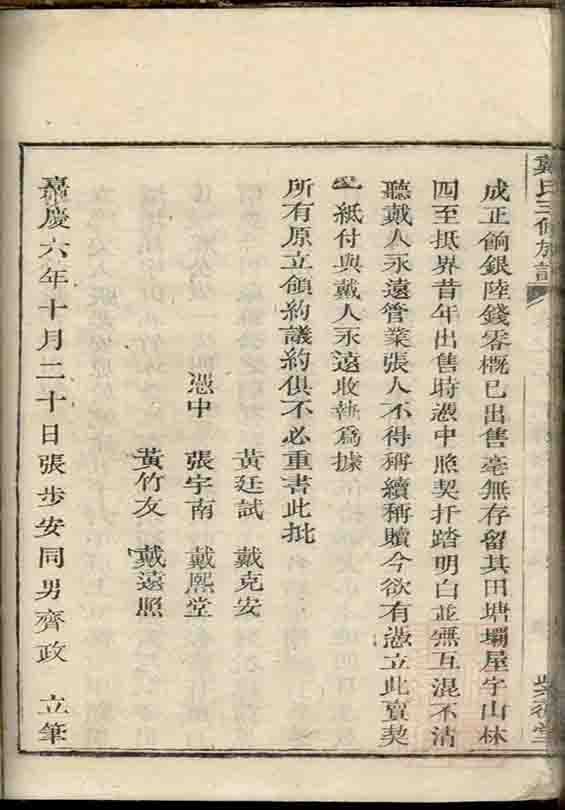 戴氏三修族譜
成正餉銀陸錢零概已出售毫無存留其田塘壩屋宇山林
四至抵界昔年出售時憑中照契扦踏明白並無互混不清
聽戴人永遠管業張人不得稱續稱贖今欲有憑立此賣契
一紙付與戴人永遠收執為據
所有原立領約議約俱不必重書此批
黃廷試 戴克安
憑中 張宇南 戴熙堂
黃竹友 戴遠照
嘉慶六年十月二十日張步安同男齊政 立筆